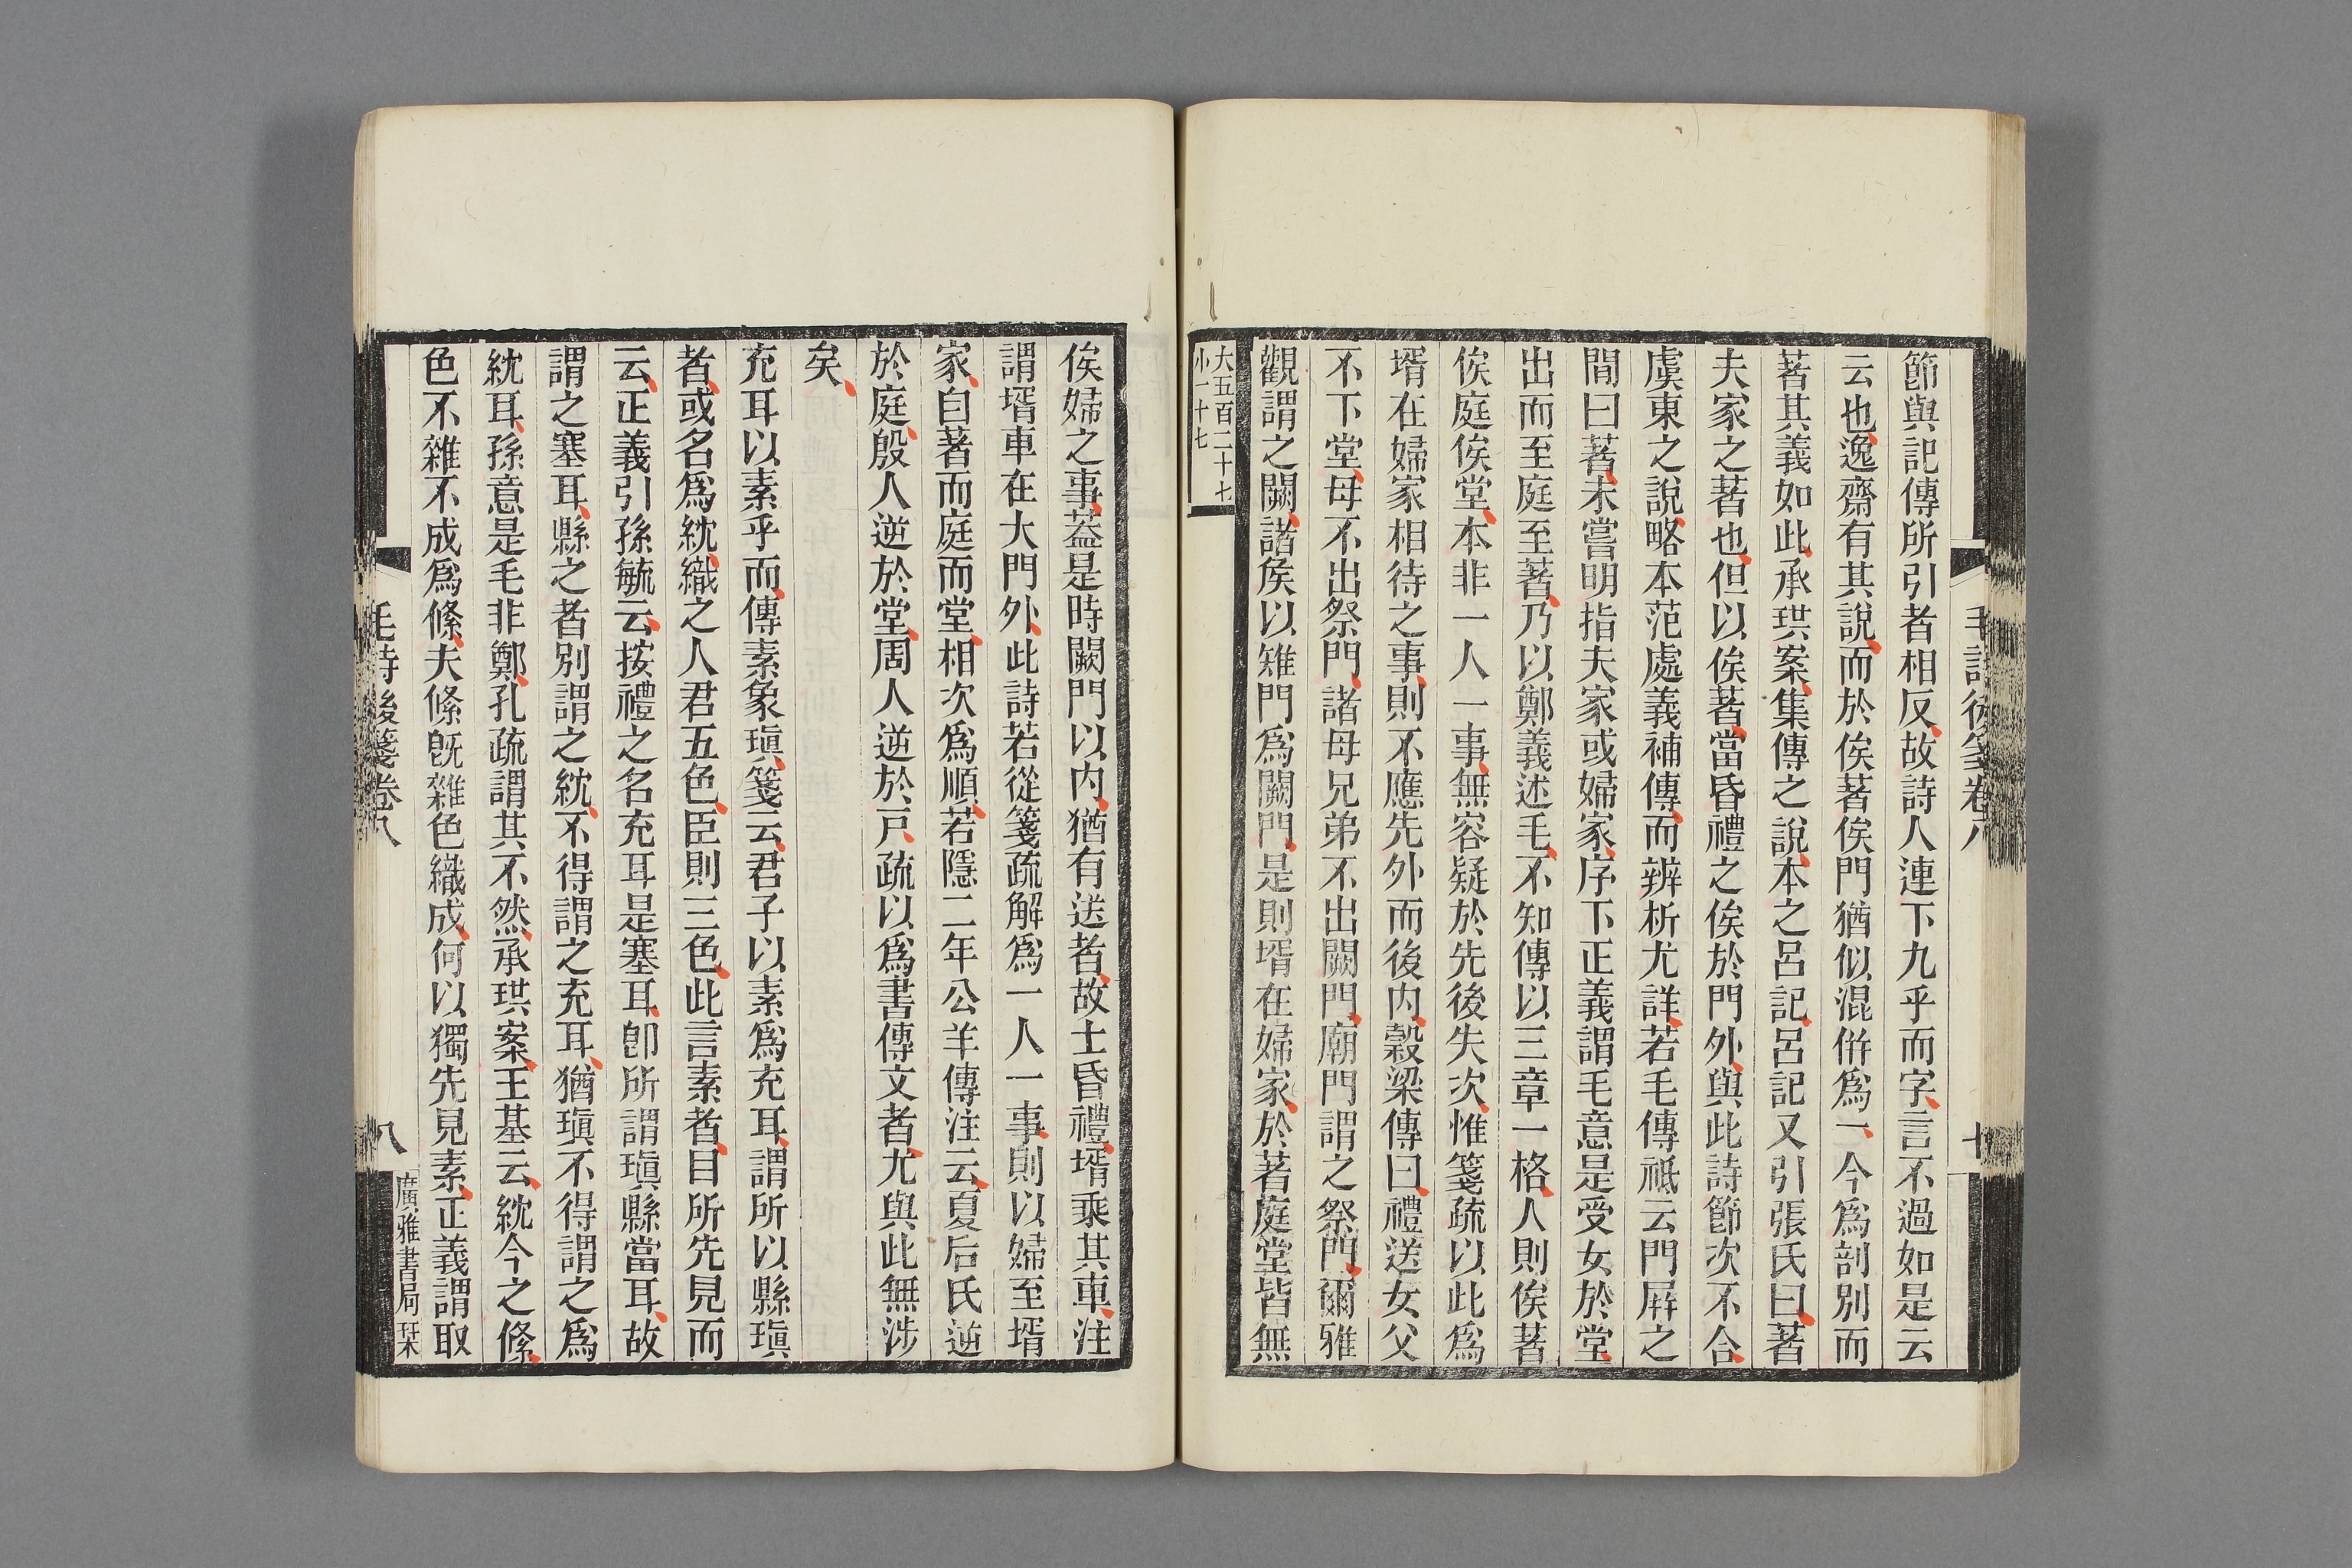 毛詩後箋卷八
十
節與記傳所引者相反故詩人連下九乎而字言不過如是云
云也逸齋有其說而於俟著俟門猶似混倂爲一今爲剖別而
著其義如此承珙案集傳之說本之呂記呂記又引張氏曰著
夫家之著也但以俟著當昏禮之俟於門外與此詩節次不合
虞東之說略本范處義補傳而辨析尤詳若毛傳祗云門屏之
間曰著未嘗明指夫家或婦家序下正義謂毛意是受女於堂
出而至庭至著乃以鄭義述毛不知傳以三章一格人則俟著
俟庭俟堂本非一人一事無容疑於先後失次惟箋疏以此爲
壻在婦家相待之事則不應先外而後內穀梁傳曰禮送女父
不下堂母不出祭門諸母兄弟不出闕門廟門謂之祭門爾雅
觀謂之闕諸侯以雉門爲闕門是則壻在婦家於著庭堂皆無
大五百二十七
小一十七
俟婦之事葢是時闕門以內猶有送者故士昏禮壻乘其車注
謂壻車在大門外此詩若從箋疏解爲一人一事則以婦至壻
家自著而庭而堂相次爲順若隱二年公羊傳注云夏后氏逆
於庭殷人逆於堂周人逆於戸疏以爲書傳文者尤與此無涉
矣
充耳以素乎而傳素象瑱箋云君子以素爲充耳謂所以縣瑱
者或名爲紞織之人君五色臣則三色此言素者目所先見而
云正義引孫毓云按禮之名充耳是塞耳卽所謂瑱縣當耳故
謂之塞耳縣之者別謂之紞不得謂之充耳猶瑱不得謂之爲
紞耳孫意是毛非鄭孔疏謂其不然承珙案王基云紞今之絛
色不雜不成爲絛夫絛旣雜色織成何以獨先見素正義謂取
毛詩後箋卷八
八
廣雅書局栞